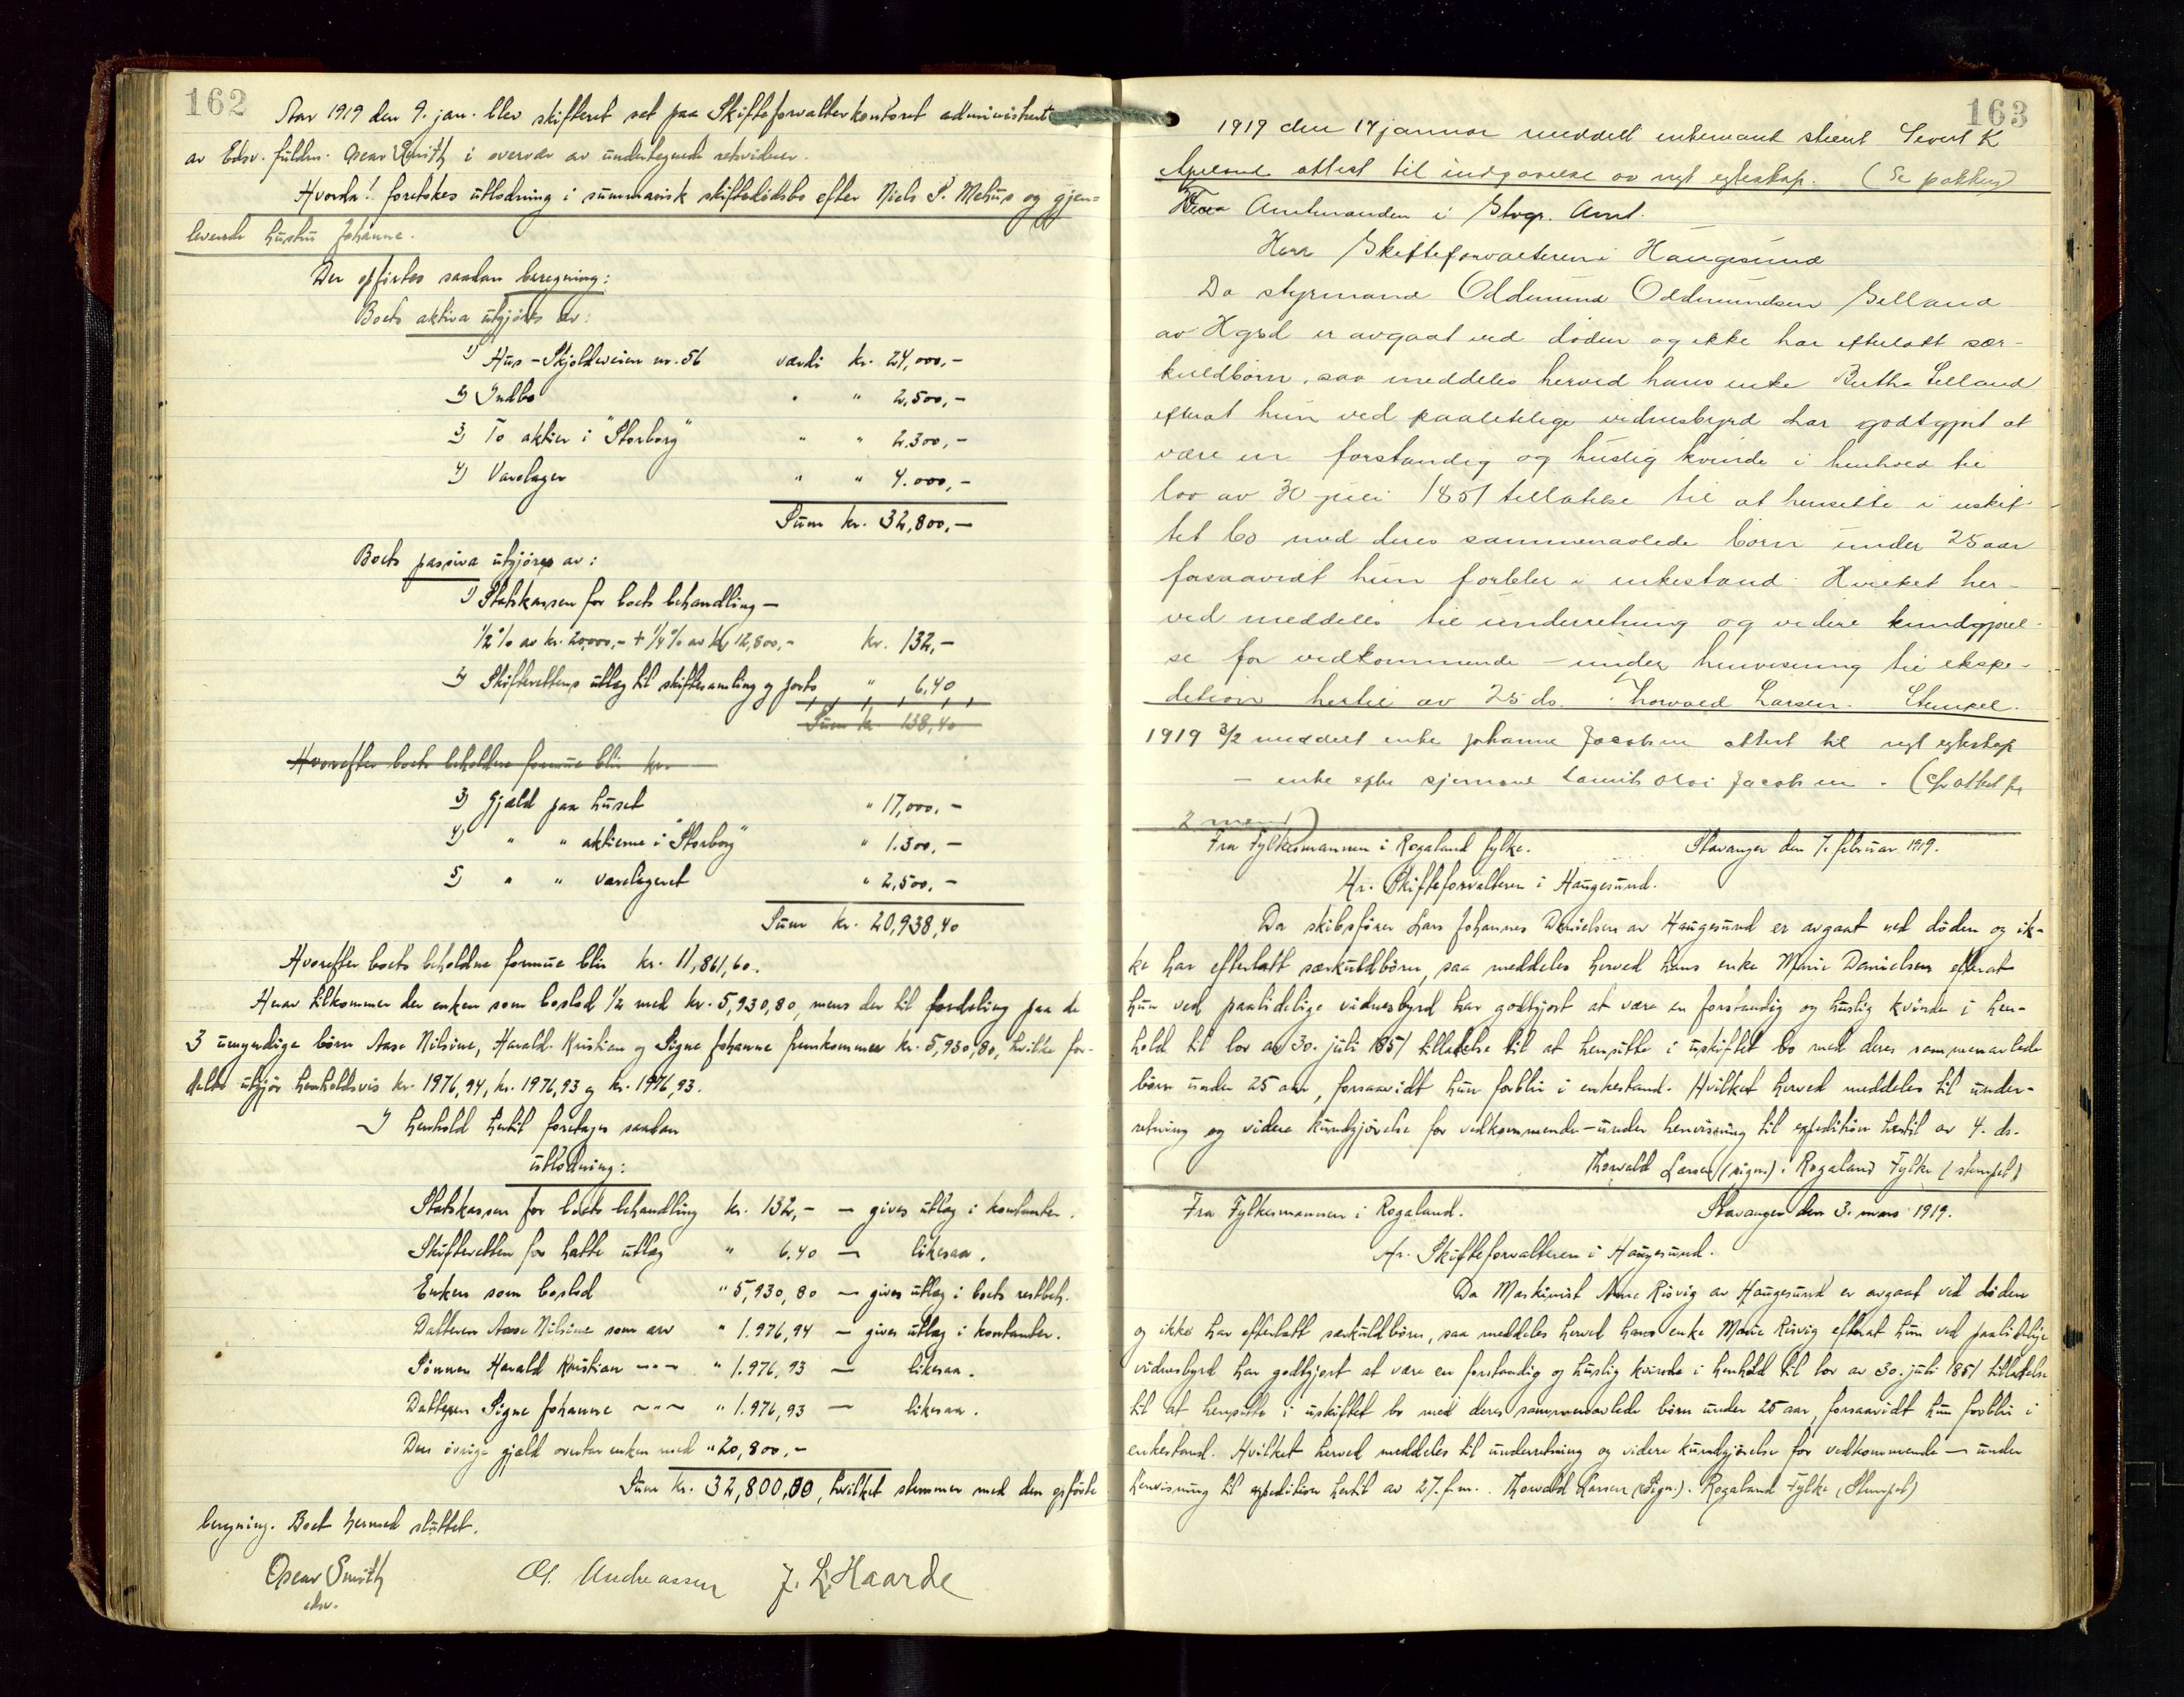 162
Aar 1919 den 9. jan. blev skifteret sat paa Skifteforvalterkontoret administrert
av Edsv. fuldm. Oscar Smith i overvær av undertegnede retsvidner.
Hvorda! foretokes utlodning i summarisk skiftedødsbo efter Niels S. Mehus og gjen-
levende hustru Johanne.
Der opførtes saadan beregning:
Boets aktiva utgjøres av:
1) Hus - Skjoldaveien nr. 56 værdi kr. 24,000,-
2) Indbo " " 2,500,-
3) To aktier i "Storborg" " " 2.300,-
4) Varelager " " 4.000,-
Sum kr. 32,800,-
Boets passiva utgjøres av:
1) Statskassen for boets behandling -
1/2 % av kr. 20,000,- + 1/4 % av kr 12,800,- kr. 132,-
2) Skifterettens utlæg til skiftesamling og porto " 6,40
Sum kr. 138,40
Hvorefter boets beholdne formue blir kr.
3) Gjæld paa huset " 17,000,-
4) " " aktierne i "Storborg" " 1.300,-
5) " " varelageret " 2,500,-
Sum kr. 20,938,40
Hvorefter boets beholdne formue blir kr. 11,861,60.
Herav tilkommer der enken som boslod 1/2 med kr. 5,930,80, mens der til fordeling paa de
3 umyndige børn Aase Nilsine, Harald Kristian og Signe Johanne fremkommer kr. 5,930,80, hvilke for-
delt utgjør henholdsvis kr. 1976,94, kr. 1976,93 og kr. 1976,93.
I henhold hertil foretages saadan
utlodning:
Statskassen for boets behandling kr. 132,- - gives utlæg i kontanter.
Skifteretten for hatte utlæg " 6,40 - likesaa.
Enken som boslod " 5,930,80 - gives utlæg i boets restbeh.
Datteren Aase Nilsine som arv " 1.976,94 - gives utlæg i kontanter.
Sønnen Harald Kristian -"- " 1.976,93 - likesaa.
Datteren Signe Johanne -"- " 1.976,93 - likesaa.
Den øvrige gjæld overtar enken med " 20,800,-
Sum kr. 32,800,00, hvilket stemmer med den opførte
beregning. Boet hermed sluttet.
Oscar Smith Andreassen J. L. Haarde
edsv.
163
1919 den 17 januar meddelt enkemand Sivert K
attest til indgaaelse av nyt egteskap. (Se pakken)
Fra Amtmanden i Stvgr. Amt.
Herr Skifteforvalteren i Haugesund
Da styrmand Oddmund Oddmundsen Selland
av Hgsd er avgaat ved døden og ikke har efterlatt sær-
kuldbørn, saa meddeles herved hans enke Bertha Selland
efterat hun ved paalitelige vidnesbyrd har godtgjort at
være en forstandig og huslig kvinde i henhold til
lov av 30 juli 1851 tillatelse til at hensitte i uskif-
tet bo med deres sammenavlede børn under 25 aar
forsaavidt hun forbler i enkestand. Hvilket her-
ved meddeles til underretning og videre kundgjørel-
se for vedkommende - under henvisning til ekspe-
dition hertil av 25 ds. Thorvald Larsen. Stempel.
1919 3/2 meddelt enke Johanne Jacobsen attest til nyt egteskap
- enke efter sjømand Olai Jacobsen. (Cfr attest fra
2 mænd)
Fra Fylkesmannen i Rogaland fylke. Stavanger den 7. februar 1919.
Hr. Skifteforvalteren i Haugesund.
Da skibsfører Lars Johannes Danielsen av Haugesund er avgaat ved døden og ik-
ke har efterlatt særkuldbørn, saa meddeles herved hans enke Marie Danielsen efterat
hun ved paalidelige vidnesbyrd har godtgjort at være en forstandig og huslig kvinde i hen-
hold til lov av 30. juli 1851 tilladelse til at hensitte i uskiftet bo med deres sammenavlede
børn under 25 aar, forsaavidt hun forblir i enkestand. Hvilket herved meddeles til under-
retning og videre kundgjørelse for vedkommende - under henvisning til expedition hertil av 4. ds.
Thorvald Larsen (sign.). Rogaland Fylke (stempel)
Fra Fylkesmannen i Rogaland. Stavanger den 3. mars 1919.
Hr. Skifteforvalteren i Haugesund.
Da Maskinist Arne Risvig av Haugesund er avgaat ved døden
og ikke har efterlatt særkuldbørn, saa meddeles herved hans enke Marie Risvig efterat hun ved paalidelige
vidnesbyrd har godtgjort at være en forstandig og huslig kvinde i henhold til lov av 30. juli 1851 tilladelse
til at hensitte i uskiftet bo med deres sammenavlede børn under 25 aar, forsaavidt hun forblir i
enkestand. Hvilket herved meddeles til underretning og videre kundgjørelse for vedkommende - under
henvisning til expedition hertil av 27. f.m. Thorvald Larsen (Sign.). Rogaland Fylke (Stempel)